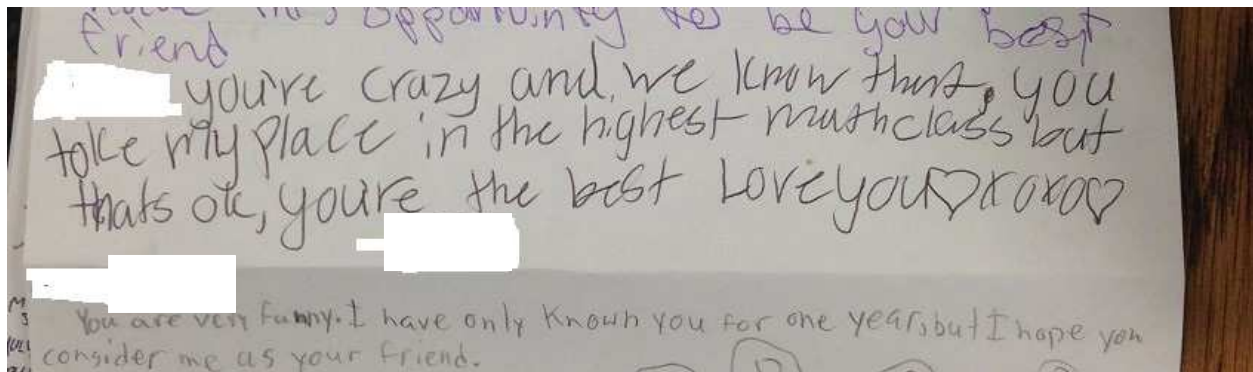 this opportunity to be your best
friend
you're crazy and, we know that, you
take my place in the highest mathclass but
thats ok, you're the best Love you♡xoxo♡
You are very funny. I have only known you for one year, but I hope you
consider me as your friend.